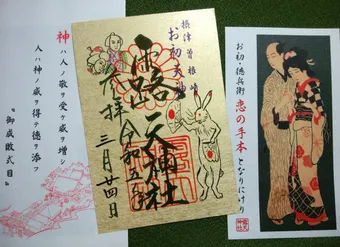 神ハ人ノ敬ヲ受ケ威ヲ増シ
人ハ神ノ威ヲ得テ徳ヲ添フ
『御成敗式目』
摂津曽根崎
お初天神
露天神社
奉拝
令和五年
三月廿四日
お初・徳兵衛
恋の手本
となりにけり